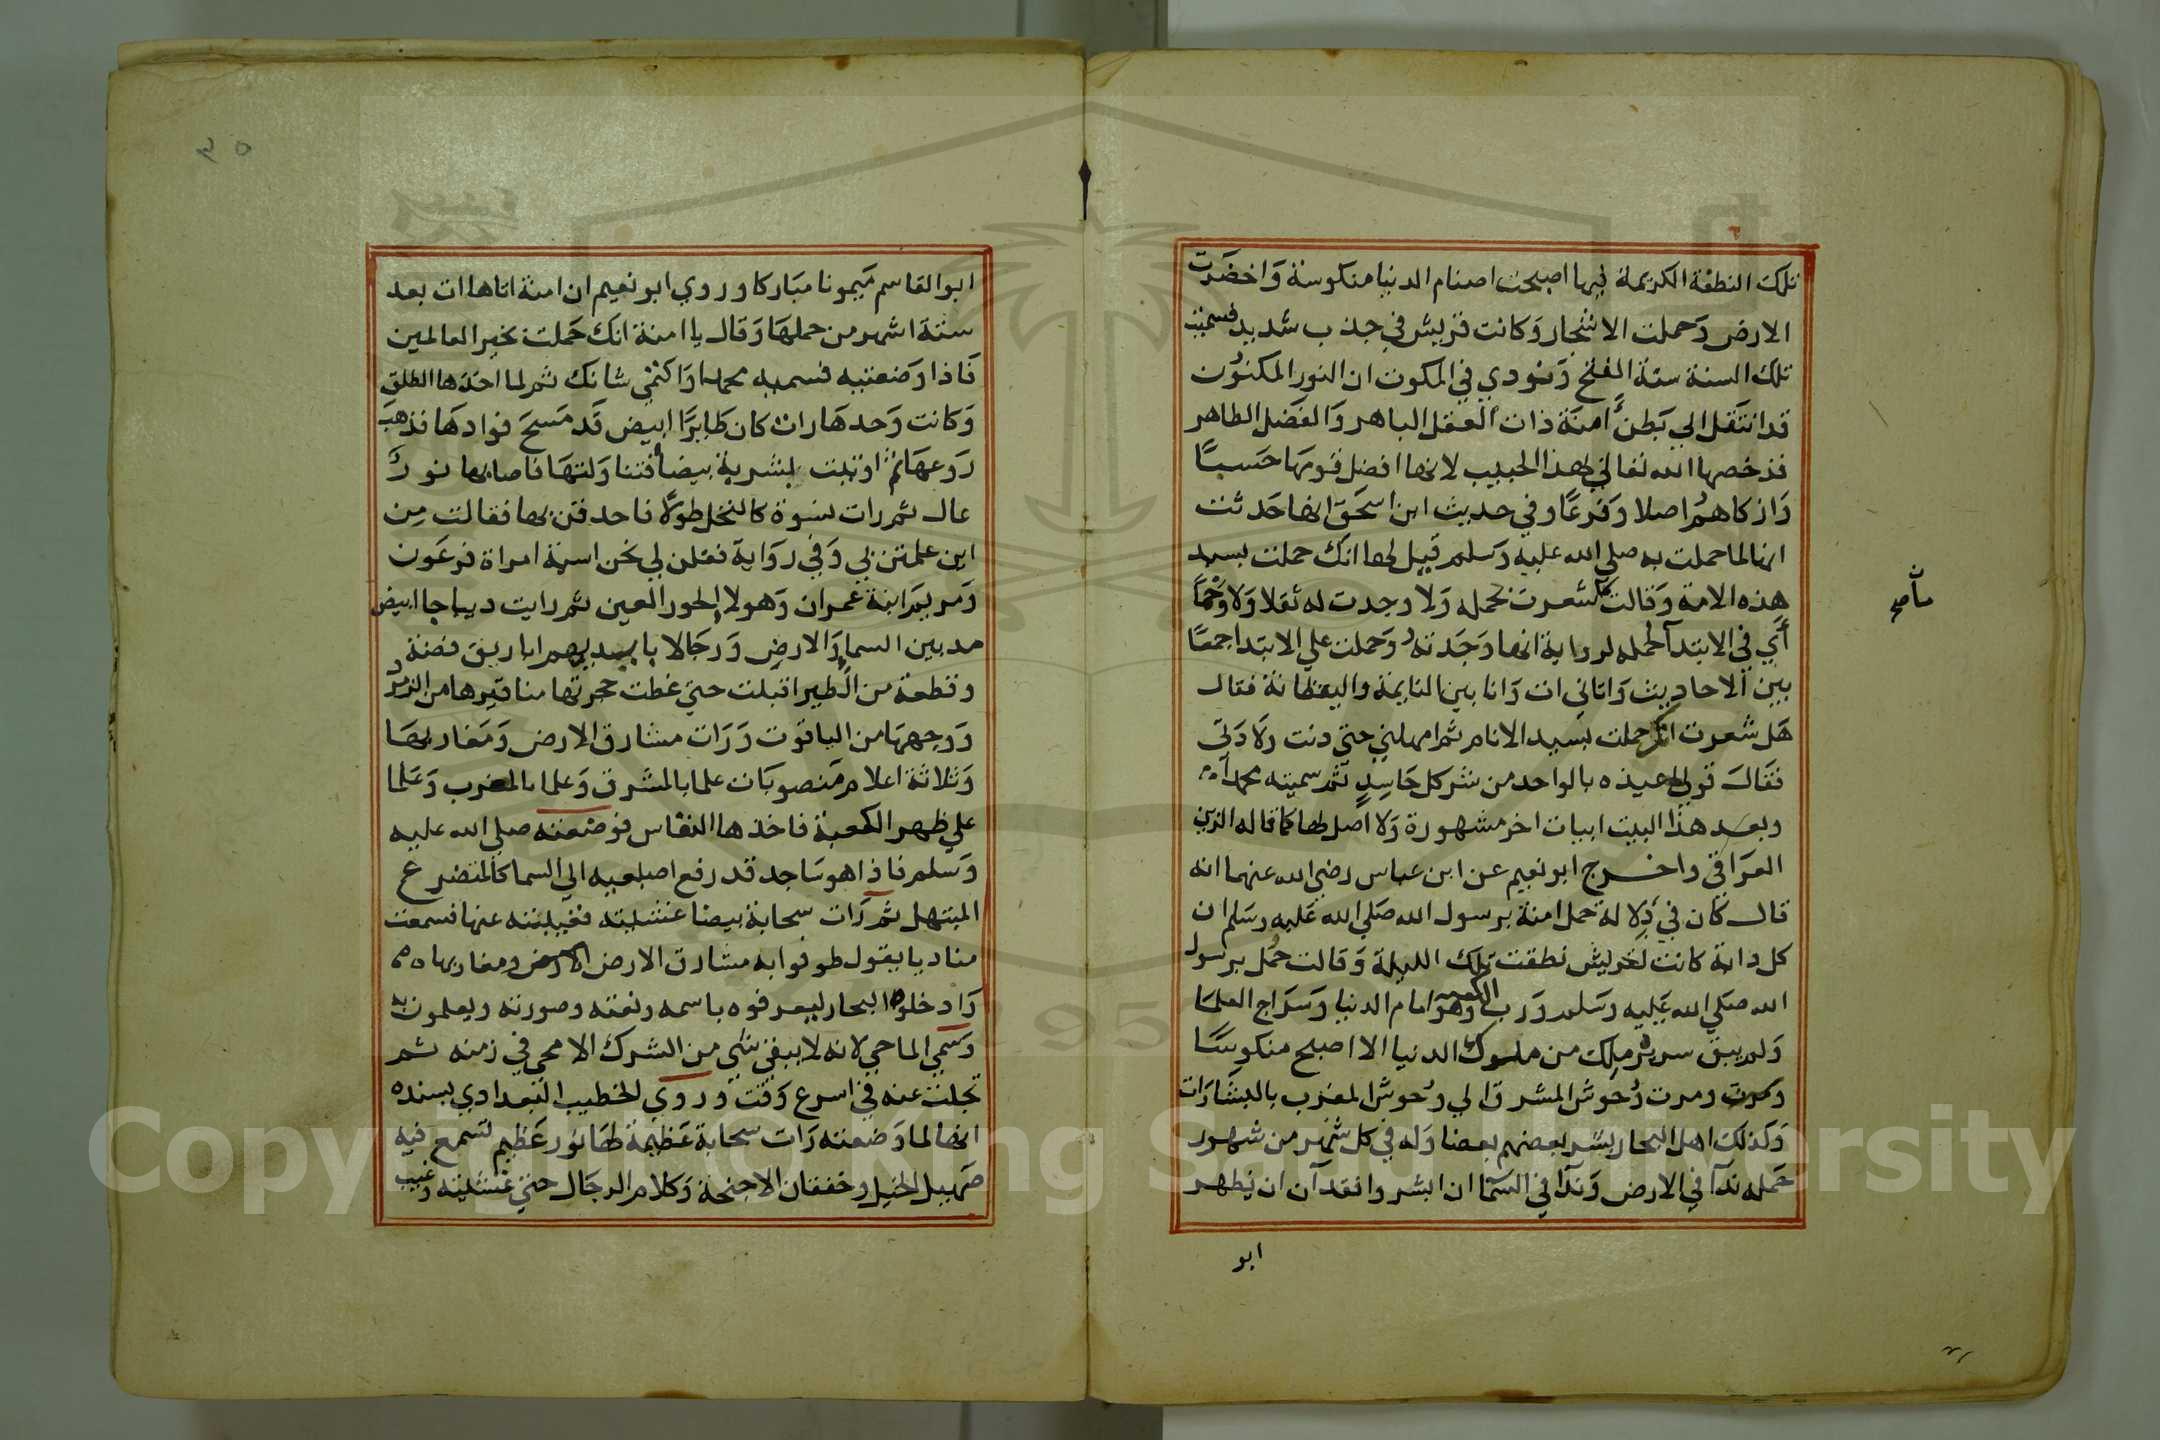 تلك النطفة الكريمة فيها اصبحت اصنام الدنيا منكوسة وَاخضَرت
الارض وَحملت الاشجار وَكانت قريش في جذب شديد فسميت
تلك السنة سنة الفتح وَنودي في المكوت ان النور المكنوُن
قد انتقل الي بَطن امنَة ذات العقل الباهر وَالفضل الطاهر
قد خصها الله تعالي بهذا الحبيب لانها افضل قومهَا حَسبًا
وَازكاهم اصلا وَفرعًا وفي حديث ابن اسحَق انها حَدثت
انها لما حملت به صلي الله عليه وَسلم قيل لها انك حملت بسيد
هذه الامة وَقالت ما شعرت بحمله وَلا وجدت له ثقلا وَلا وَحْمًا
أي في الابتدآ لحمله لرواية انها وَجَدته وَحملت علي الابتدا جمعًا
بين الاحاديث وَاتاني ات وَانا بين النايمة واليقظانة فقال
هَل شعرت انك حملت بسَيد الانام ثم امهلني حتي دنت ولادَتي
فقَال قولي اعيذه بالواحد من شر كل حَاسِدٍ ثم سميته محمدا
وبعد هذا البيت ابيات اخر مشهورة وَلا اصل لها كما قاله الزين
العرَاقي واخرج ابو نعيم عن ابن عباس رضي الله عنهما انه
قال كان في دِلالة حمل امنة برسول الله صَلي الله عَليه وسَلم ان
كل دابة كانت لقريش نطقت تلك الليلة وَقالت حُمل برسول
الله صَلي الله عَليه وسَلم وَرب الكعبه وَهوَ امام الدنيا وَسَرَاج العلمَا
وَلم يبق سرير مِلك من ملوك الدنيا الا اصبح منكوسًا
ومرت وُحوش المشرق الي وُحوش المغرب بالبشَارَات
وَكذلك اهل البحار يبشر بعضهم بعضا وَله في كل شهر من شهور
حَمله ندآ في الارض وَندآ في السَمَا ان ابشروا فقد آن ان يظهر
ابو
صح
ابو القاسم مَيمونا مبَاركا وروي ابو نعيم ان امنة اتاها ات بعد
ستة اشهر من حملها وَقال يا امنة انك حَملت بخير العالمين
فَاذا وَضعتيه فسميه محمدا وَاكتمي شانك ثم لما اخذها الطلق
وَكانت وَحدهَا رات كان طَايرًا ابيض قد مَسحَ فوادهَا فذهب
رَوعهَا ثم اوتيت بشربة بيضا فتناوَلتهَا فاصابها نورٌ
عال ثم رات نسوة كالنخل طولًا فاحدقن بها فقالت مِن
اين علمتن بي وَفي روَاية فقلن لي نحن اسية امراة فرعَون
وَمريم ابنة عمران وَهولا الحور العين ثم رايت ديباجا ابيض
مد بين السما وَالارض وَرجَالا بايديهم اباريق فضة
وقطعة من الطير اقبلت حتي غطت حجرتها مناقيرها من الزمرد
وَوجههَا من الياقوت وَرَات مشارق الارض وَمَغاربهَا
وَثلاثة اعلام مَنصوبَات علما بالمشَرق وَعلما بالمغرب وَعَلما
علي ظهر الكعبة فاخذها النفاس فوضعته صلي الله عليه
وَسلم فاذا هو سَاجد قد رفع اصبعيه الي السما كالمتضرع
المبتهل ثم رَات سحابة بيضا غشيته فغيبته عنها فسمعت
مناديا يقول طوفوا به مشارق الارض ومغاربها
وَادخلوه البحار ليعرفوه باسمه ونعته وصورته ويعلمون به
وسَمي الماحي لانه لا يبقي شي من الشرك الا محي في زمنه ثم
تجلت عنه في اسرع وَقت وروي الخطيب البَغدادي بسنده
انها لما وَضعته رَات سحابة عَظيمة لها نور عَظيم تسمع فيه
صَهيل الخيل وخفقان الاجنحة وَكلام الرجَال حتي غشيته وغيب
٣٥